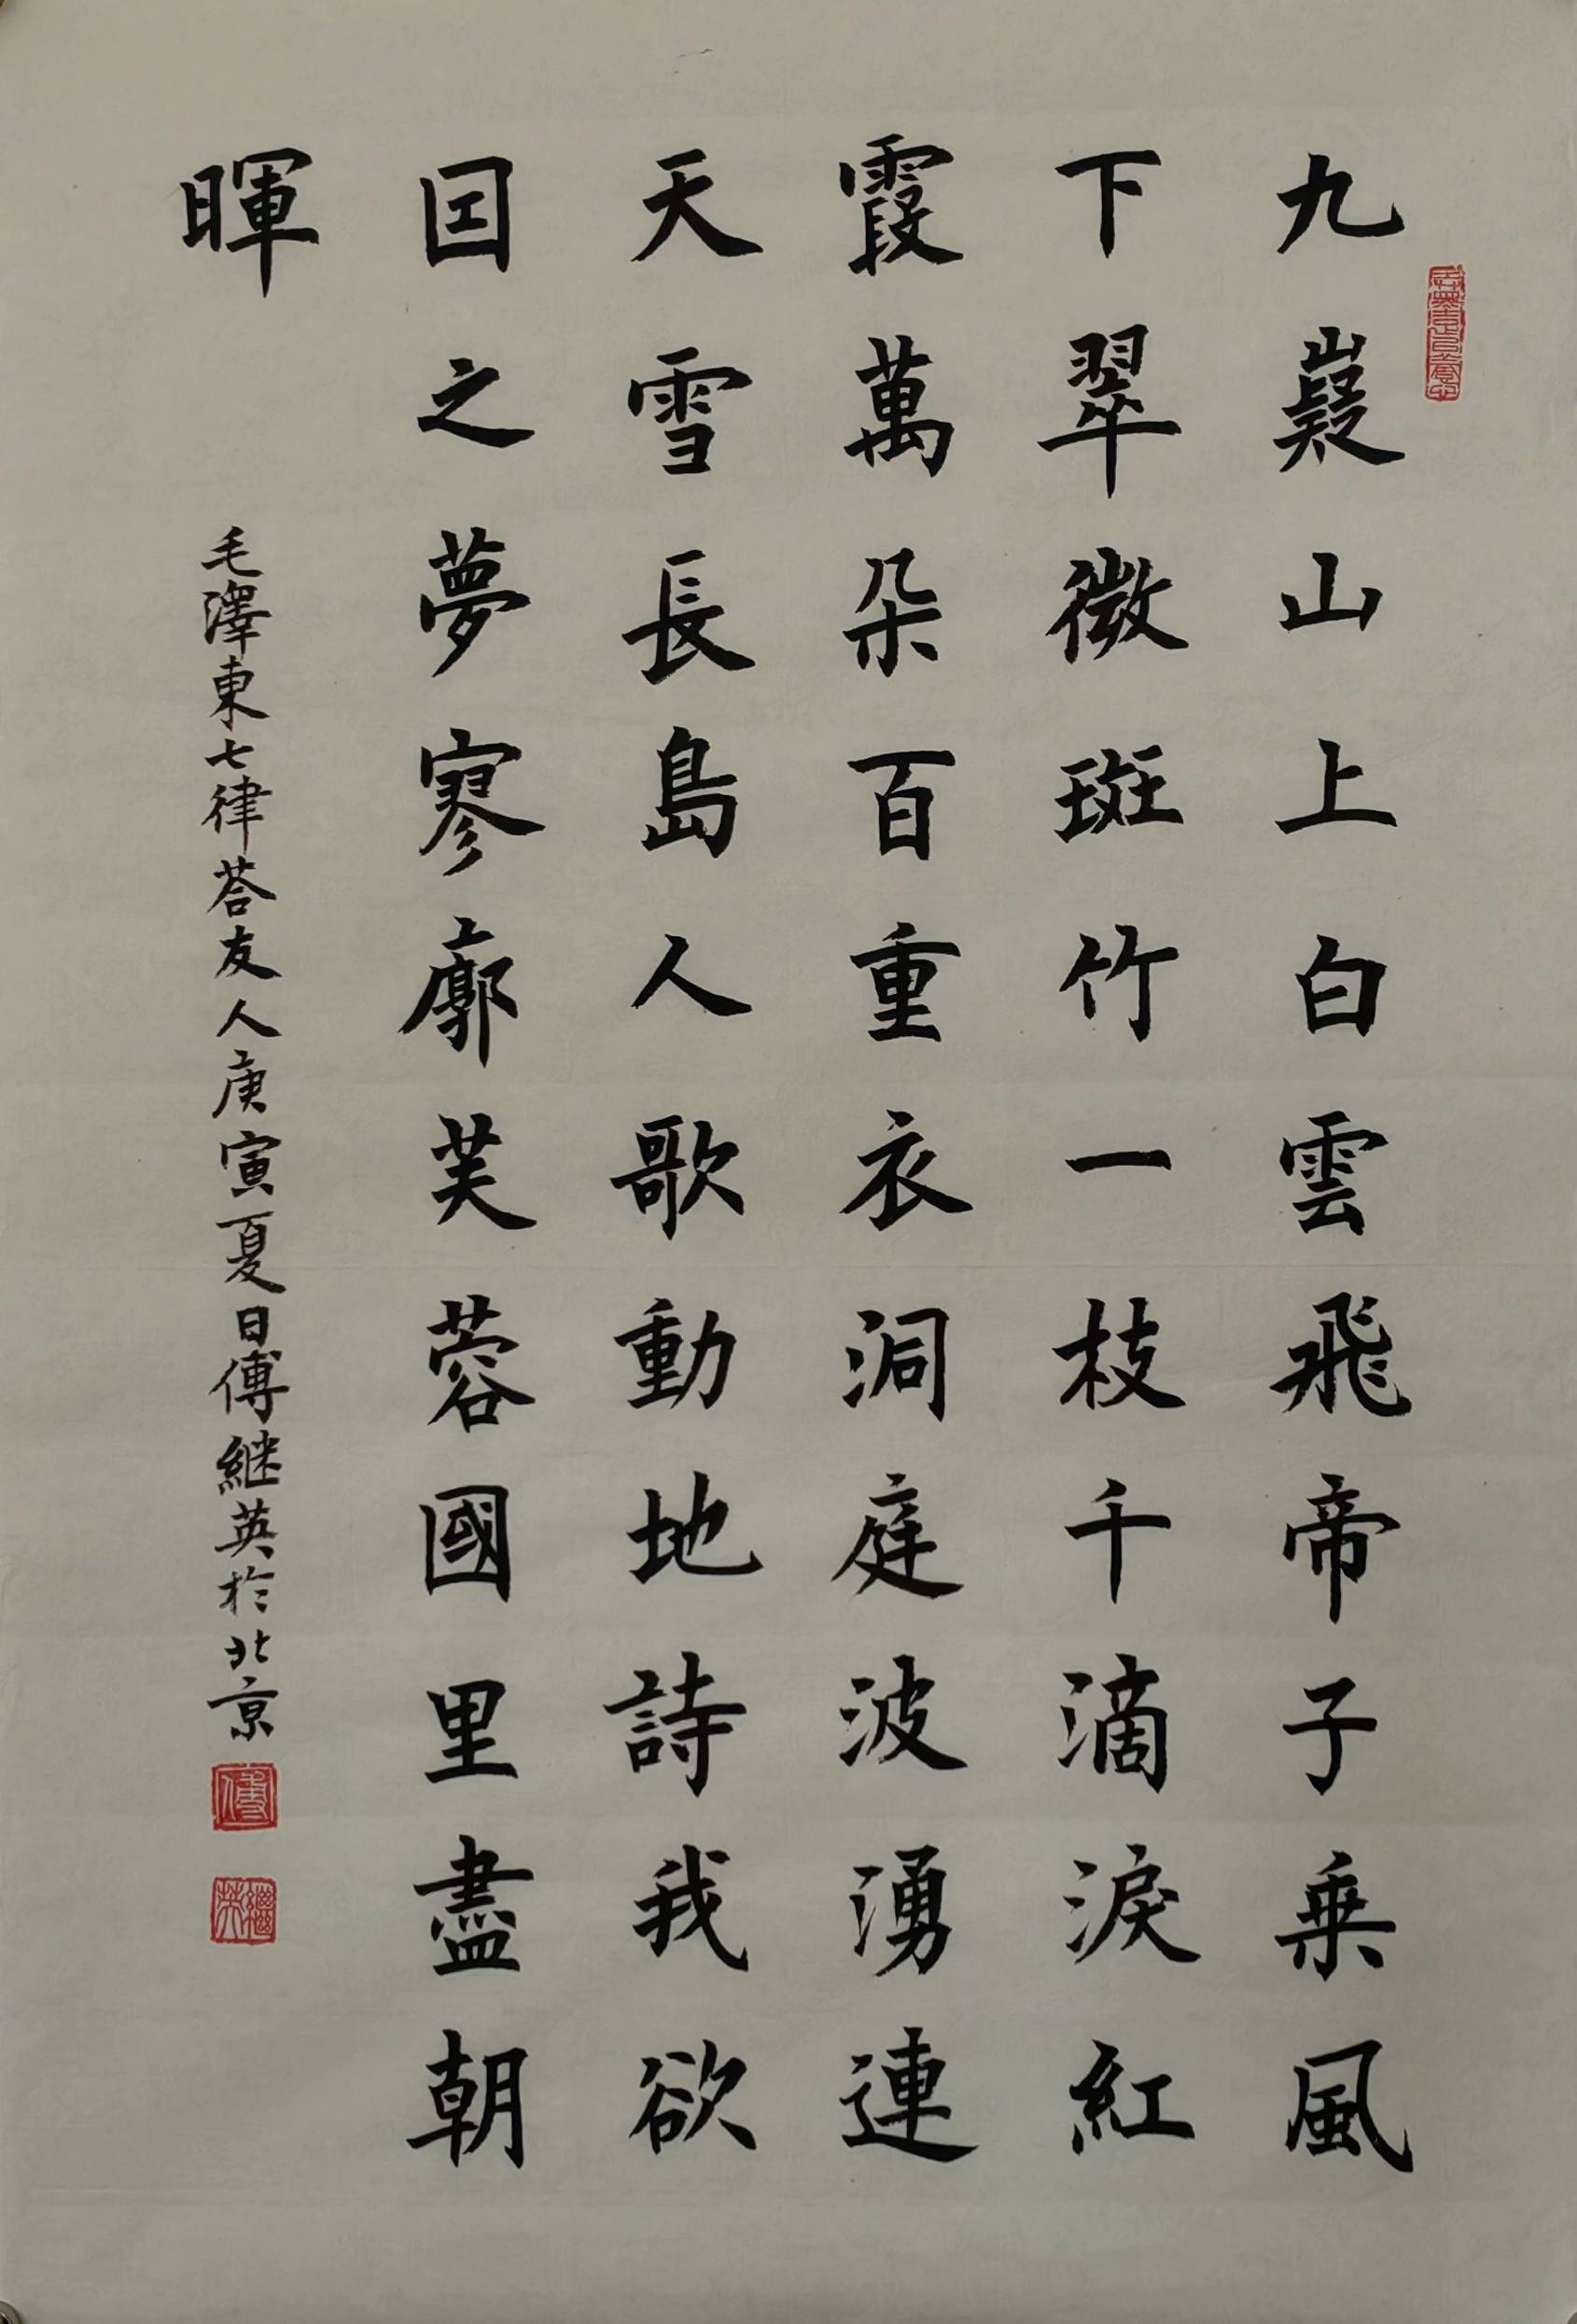 九嶷山上白雲飛帝子乗風
下翠微斑竹一枝千滴淚紅
霞萬朵百重衣洞庭波湧連
天雪長島人歌動地詩我欲
囙之夢寥廓芙蓉國里盡朝
暉
毛澤東七律荅友人庚寅夏日傅継英於北京
傅
繼英